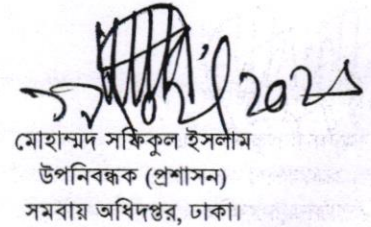 ২০২১
মোহাম্মদ সফিকুল ইসলাম
উপনিবন্ধক (প্রশাসন)
সমবায় অধিদপ্তর, ঢাকা।